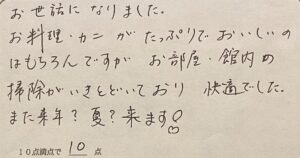 お世話になりました。
お料理・カニがたっぷりでおいしいの
はもちろんですが お部屋・館内の
掃除がいきとどいており 快適でした。
また来年?夏?来ます♡
10点満点で 10 点